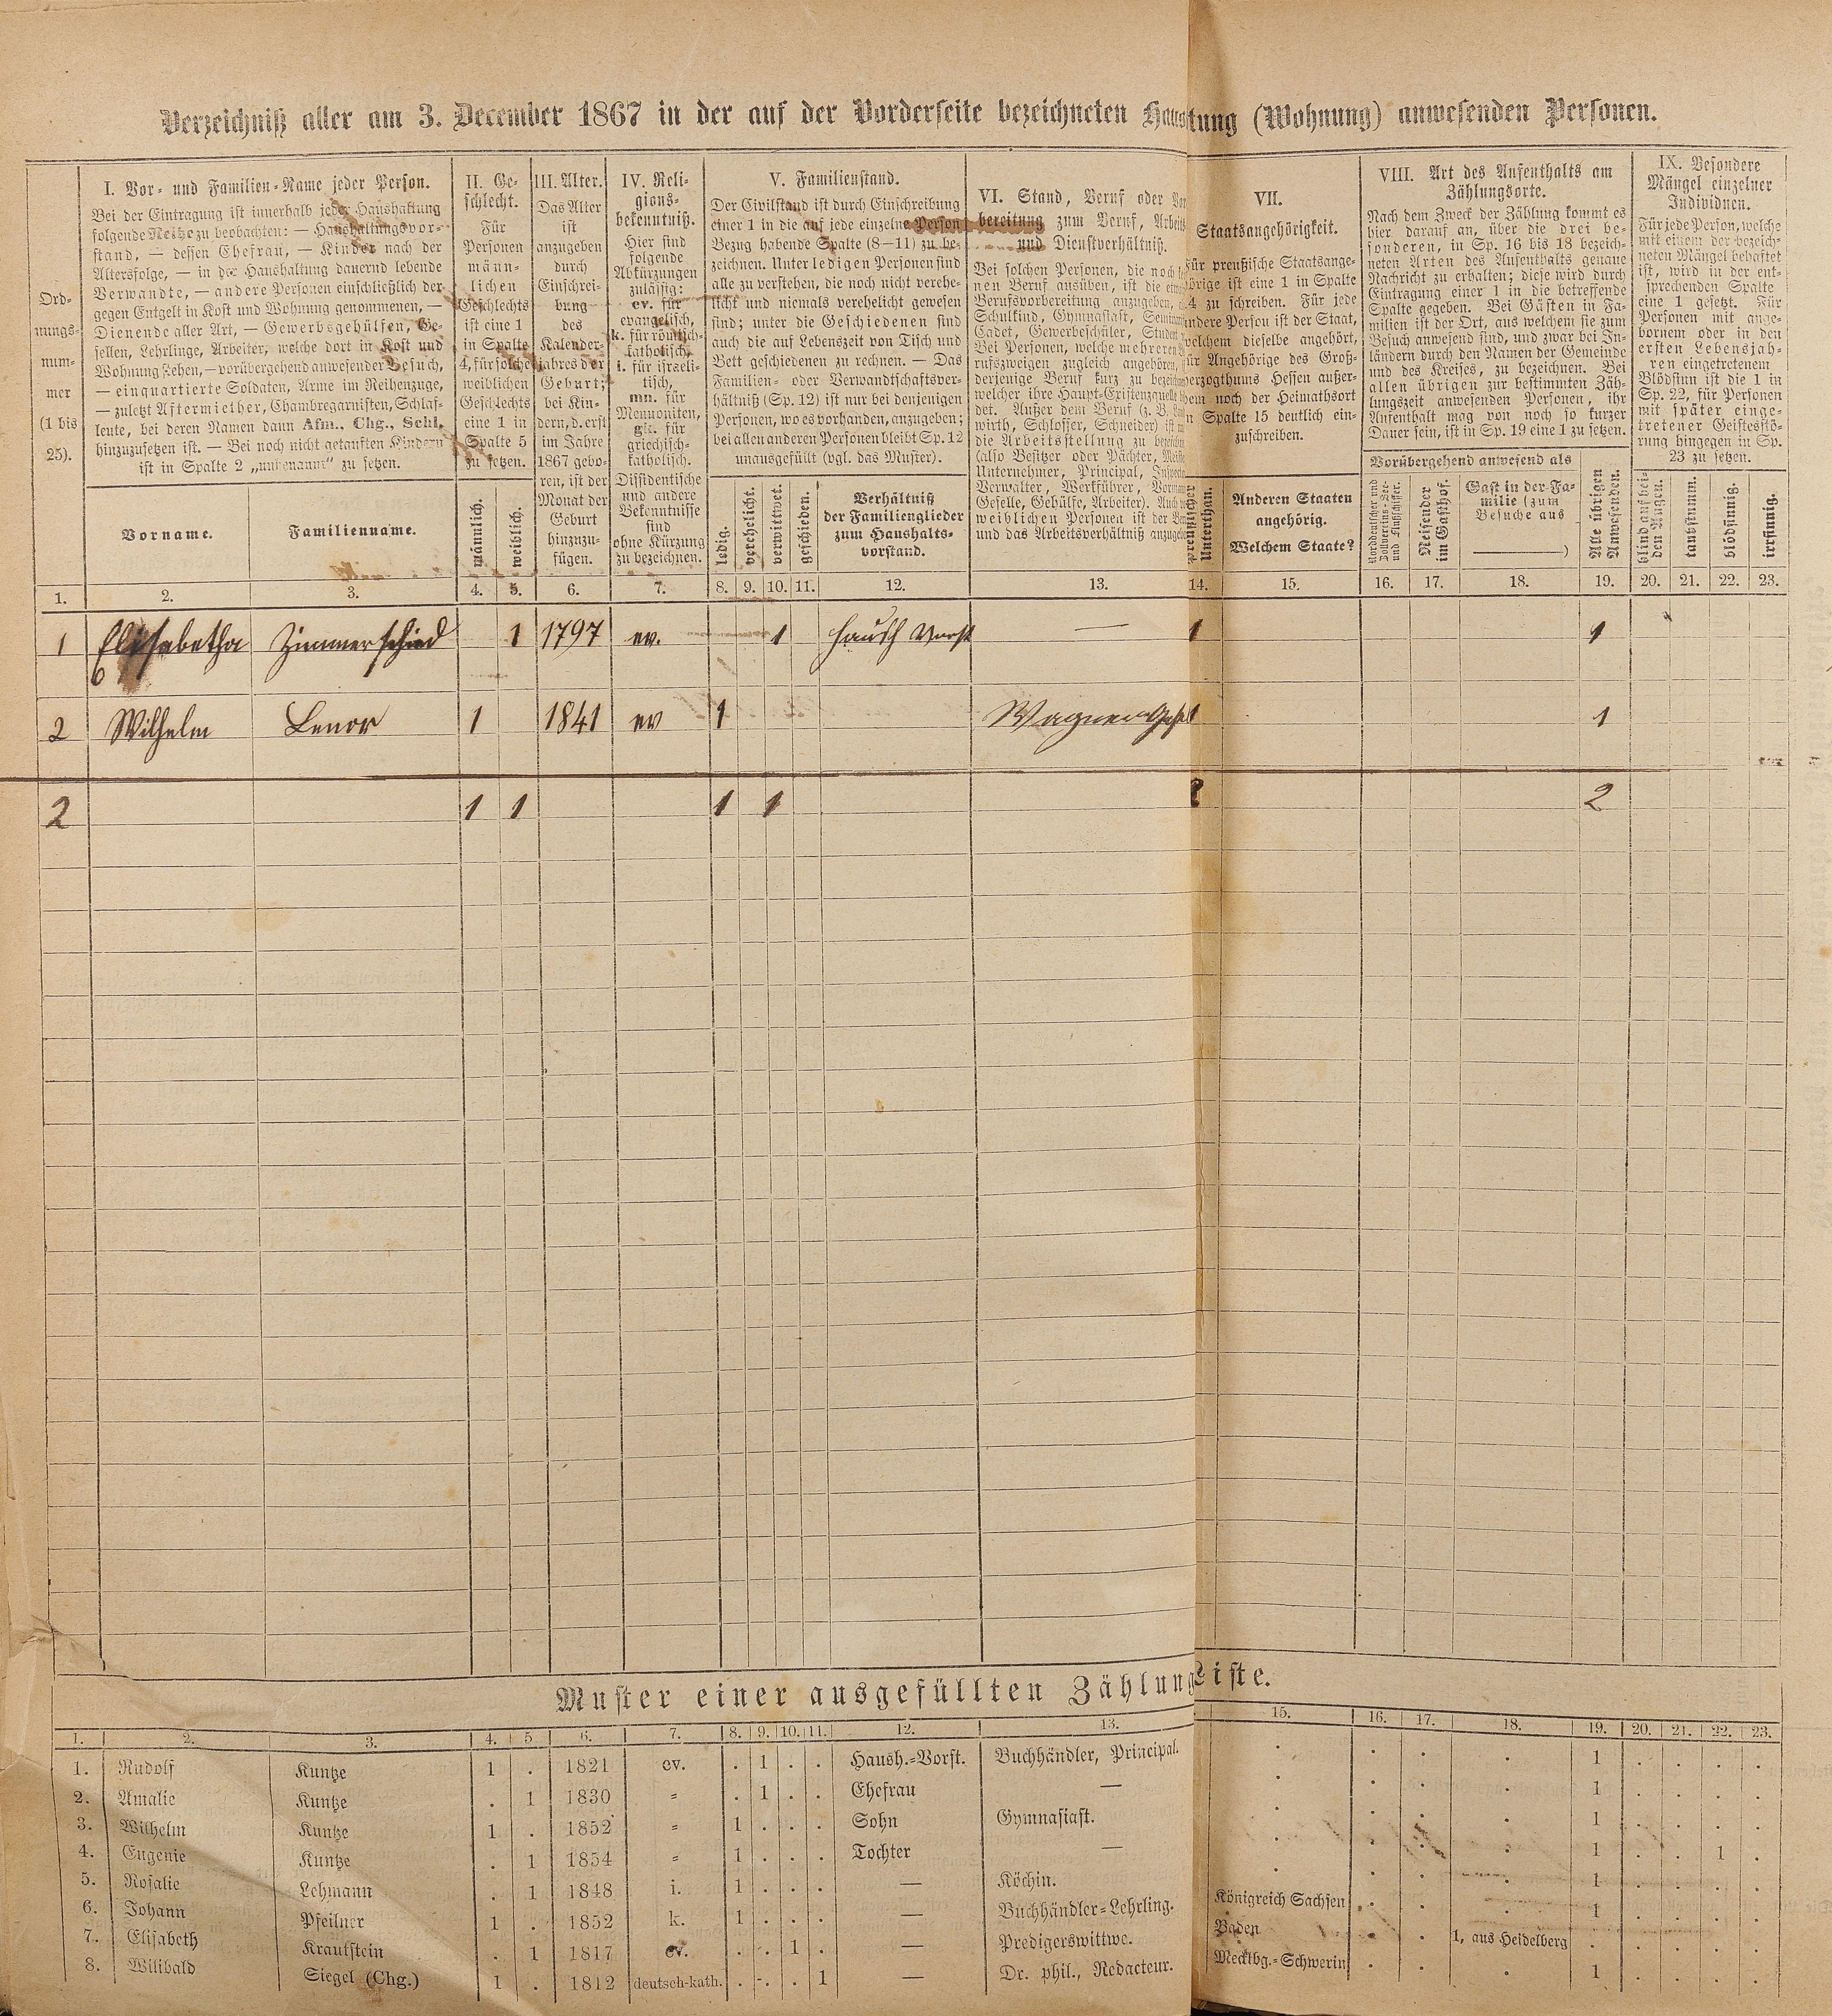 Verzeichniß aller am 3. December 1867 in der auf der Vorderseite bezeichneten Haus tung (Wohnung) anwesenden Personen.
Ord-
nungs-
num-
mer
(1 bis
25).
I. Vor- und Familien-Name jeder Person.
Bei der Eintragung ist innerhalb jeder Haushaltung
folgende Reihe zu beobachten: — Haushaltungsvor-
stand, — dessen Ehefrau, — Kinder nach der
Altersfolge, — in der Haushaltung dauernd lebende
Verwandte, — andere Personen einschließlich der
gegen Entgelt in Kost und Wohnung genommenen, —
Dienende aller Art, — Gewerbsgehülfen, Ge-
sellen, Lehrlinge, Arbeiter, welche dort in Kost und
Wohnung stehen, — vorübergehend anwesender Besuch,
— einquartierte Soldaten, Arme im Reihenzuge,
— zuletzt Aftermiether, Chambregarnisten, Schlaf-
leute, bei deren Namen dann Afm., Chg., Schl.
hinzuzusetzen ist. — Bei noch nicht getauften Kindern
ist in Spalte 2 „unbenannt“ zu setzen.
Vorname.
Familienname.
II. Ge-
schlecht.
Für
Personen
männ-
lichen
Geschlechts
ist eine 1
in Spalte
4, für solche
weiblichen
Geschlechts
eine 1 in
Spalte 5
zu setzen.
männlich.
weiblich.
III. Alter.
Das Alter
ist
anzugeben
durch
Einschrei-
bung
des
Kalender-
jahres der
Geburt;
bei Kin-
dern, d. erst
im Jahre
1867 gebo-
ren, ist der
Monat der
Geburt
hinzuzu-
fügen.
IV. Reli-
gions-
bekenntniß.
Hier sind
folgende
Abkürzungen
zulässig:
ev. für
evangelisch,
k. für römisch-
katholisch,
i. für israeli-
tisch,
mn. für
Mennoniten,
gk. für
griechisch-
katholisch.
Dissidentische
und andere
Bekenntnisse
sind
ohne Kürzung
zu bezeichnen.
V. Familienstand.
Der Civilstand ist durch Einschreibung
einer 1 in die auf jede einzelne Person
Bezug habende Spalte (8—11) zu be-
zeichnen. Unter ledigen Personen sind
alle zu verstehen, die noch nicht verehe-
licht und niemals verehelicht gewesen
sind; unter die Geschiedenen sind
auch die auf Lebenszeit von Tisch und
Bett geschiedenen zu rechnen. — Das
Familien- oder Verwandtschaftsver-
hältniß (Sp. 12) ist nur bei denjenigen
Personen, wo es vorhanden, anzugeben;
bei allen anderen Personen bleibt Sp. 12
unausgefüllt (vgl. das Muster).
ledig.
verehelicht.
verwittwet.
geschieden.
Verhältniß
der Familienglieder
zum Haushalts-
vorstand.
VI. Stand, Beruf oder Vor
bereitung zum Beruf, Arbeits
und Dienstverhältniß.
Bei solchen Personen, die noch
nen Beruf ausüben, ist die
Berufsvorbereitung anzugeben,
Schulkind, Gymnasiast, Seminar
Cadet, Gewerbeschüler, Student
Bei Personen, welche mehreren
rufszweigen zugleich angehören,
derjenige Beruf kurz zu bezeichn
welcher ihre Haupt-Existenzquelle
det. Außer dem Beruf (z. B. Land
wirth, Schlosser, Schneider) ist
die Arbeitsstellung zu bezeichn
(also Besitzer oder Pächter, Meister
Unternehmer, Principal, Inspector
Verwalter, Werkführer, Vorman
Geselle, Gehülfe, Arbeiter). Auch
weiblichen Personen ist der Be
und das Arbeitsverhältniß anzuge
VII.
Staatsangehörigkeit.
Für preußische Staatsange-
hörige ist eine 1 in Spalte
4 zu schreiben. Für jede
andere Person ist der Staat,
welchem dieselbe angehört,
für Angehörige des Groß-
herzogthums Hessen außer-
dem noch der Heimathsort
in Spalte 15 deutlich ein-
zuschreiben.
Unterthan.
Anderen Staaten
angehörig.
Welchem Staate?
VIII. Art des Aufenthalts am
Zählungsorte.
Nach dem Zweck der Zählung kommt es
hier darauf an, über die drei be-
sonderen, in Sp. 16 bis 18 bezeich-
neten Arten des Aufenthalts genaue
Nachricht zu erhalten; diese wird durch
Eintragung einer 1 in die betreffende
Spalte gegeben. Bei Gästen in Fa-
milien ist der Ort, aus welchem sie zum
Besuch anwesend sind, und zwar bei In-
ländern durch den Namen der Gemeinde
und des Kreises, zu bezeichnen. Bei
allen übrigen zur bestimmten Zäh-
lungszeit anwesenden Personen, ihr
Aufenthalt mag von noch so kurzer
Dauer sein, ist in Sp. 19 eine 1 zu setzen.
Vorübergehend anwesend als
Norddeutscher und
Zollvereins-See-
und Flußschiffer.
Reisender
im Gasthof.
Gast in der Fa-
milie (zum
Besuche aus
)
Alle übrigen
Anwesenden.
IX. Besondere
Mängel einzelner
Individuen.
Für jede Person, welche
mit einem der bezeich-
neten Mängel behaftet
ist, wird in der ent-
sprechenden Spalte
eine 1 gesetzt. Für
Personen mit ange-
bornem oder in den
ersten Lebensjah-
ren eingetretenem
Blödsinn ist die 1 in
Sp. 22, für Personen
mit später einge-
tretener Geistesstö-
rung hingegen in Sp.
23 zu setzen.
blind auf bei-
den Augen.
taubstumm.
blödsinnig.
irrsinnig.
1. 2. 3. 4. 5. 6. 7. 8. 9. 10. 11. 12. 13. 14. 15. 16. 17. 18. 19. 20. 21. 22. 23.
1 Elisabetha Zimmerschied 1 1797 ev. 1 Haush Vorst — 1 1
2 Wilhelm Lenor 1 1841 ev 1 Wagner 1 1
2 1 1 1 1 2 2
Muster einer ausgefüllten Zählung Liste.
1. 2. 3. 4. 5. 6. 7. 8. 9. 10. 11. 12. 13. 15. 16. 17. 18. 19. 20. 21. 22. 23.
1. Rudolf Kuntze 1 . 1821 ev. . 1 . . Haush.-Vorst. Buchhändler, Principal. . . . . 1 . . . .
2. Amalie Kuntze . 1 1830 = . 1 . . Ehefrau — . . . . 1 . . . .
3. Wilhelm Kuntze 1 . 1852 = 1 . . . Sohn Gymnasiast. . . . . 1 . . . .
4. Eugenie Kuntze . 1 1854 = 1 . . . Tochter — . . . . 1 . . 1 .
5. Rosalie Lehmann . 1 1848 i. 1 . . . — Köchin. . . . . 1 . . . .
6. Johann Pfeilner 1 . 1852 k. 1 . . . — Buchhändler-Lehrling. Königreich Sachsen . . . 1 . . . .
7. Elisabeth Krautstein . 1 1817 ev. . . 1 . — Predigerswittwe. Baden . . 1, aus Heidelberg . . . . .
8. Wilibald Siegel (Chg.) 1 . 1812 deutsch-kath. . . . 1 — Dr. phil., Redacteur. Mecklbg.-Schwerin . . . 1 . . . .